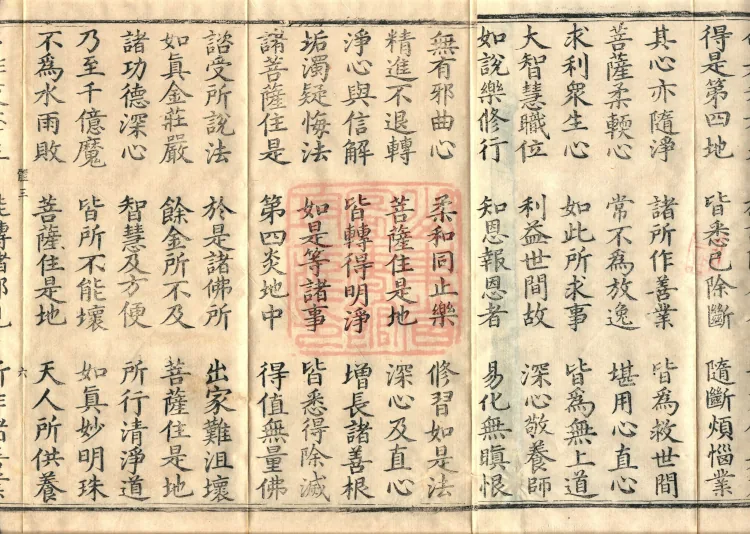 得是第四地　皆悉已除斷　隨斷煩惱業
其心亦隨淨　諸所作善業　皆爲救世間
菩薩柔輭心　常不爲放逸　堪用心直心
求利衆生心　如此所求事　皆爲無上道
大智慧職位　利益世間故　深心敬養師
如說樂修行　知恩報恩者　易化無瞋恨
無有邪曲心　柔和同止樂　修習如是法
精進不退轉　菩薩住是地　深心及直心
淨心與信解　皆轉得明淨　增長諸善根
垢濁疑悔法　如是等諸事　皆悉得除滅
諸菩薩住是　第四炎地中　得值無量佛
諮受所說法　於是諸佛所　出家難沮壞
如眞金莊嚴　餘金所不及　菩薩住是地
諸功德深心　智慧及方便　所行清淨道
乃至千億魔　皆所不能壞　如眞妙明珠
不爲水雨敗　菩薩住是地　天人所供養
三　六